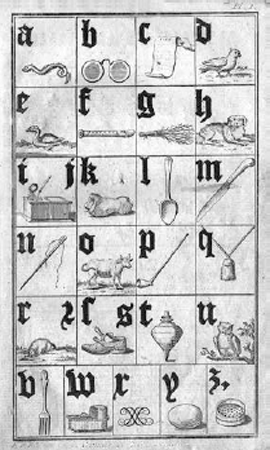 a b c d
e f g h
i j k l m
n o p q
r ꝛ ſ s t u
v w x y z.